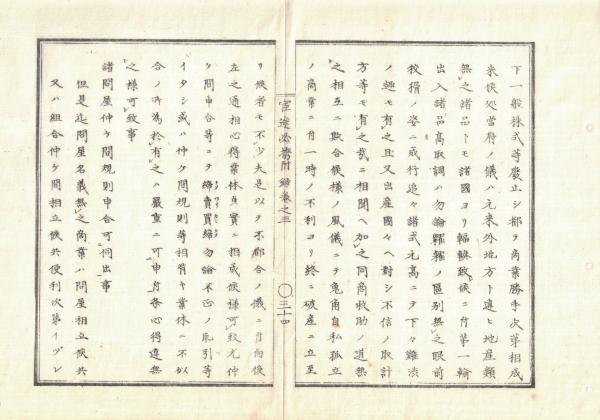 下一般株式等廃止シ都テ商業勝手次第相成
来候処当府ノ儀ハ元来外地方ト違ヒ地産類
無之諸品トモ諸国ヨリ輻輳致候ニ付第一輸
出入諸品高取調ハ勿論糶糴ノ区別無之眼前
ノ姿ニ成行追々諸式元高ニテ下々難渋
ノ趣モ有之且又出産国々ヘ対シ不信ノ取計
方等モ有之哉ニ相聞ヘ加之同商救助ノ道無
之相互ニ欺合候様ノ風儀ニテ 自私孤立
ノ商業ニ付一時ノ不利ヨリ終ニ破産ニ立至
官途必携附録巻之三
〇三十四
リ候者モ不少夫是以テ不都合ノ儀ニ付向後
左之通相心得業体真実ニ相成候様可致尤仲
ケ間申合等ニテ 売買 勿論不正ノ取引等
イタシ或ハ仲ケ間規則等相背キ業体ニ不似
合ノ所為於有之ハ厳重ニ可申付条心得違無
之様可致事
諸問屋仲ケ間規則申合可伺出事
但是迄問屋名義無之商業ハ問屋相立候共
又ハ組合仲ケ間相立候共便利次第イヅレ